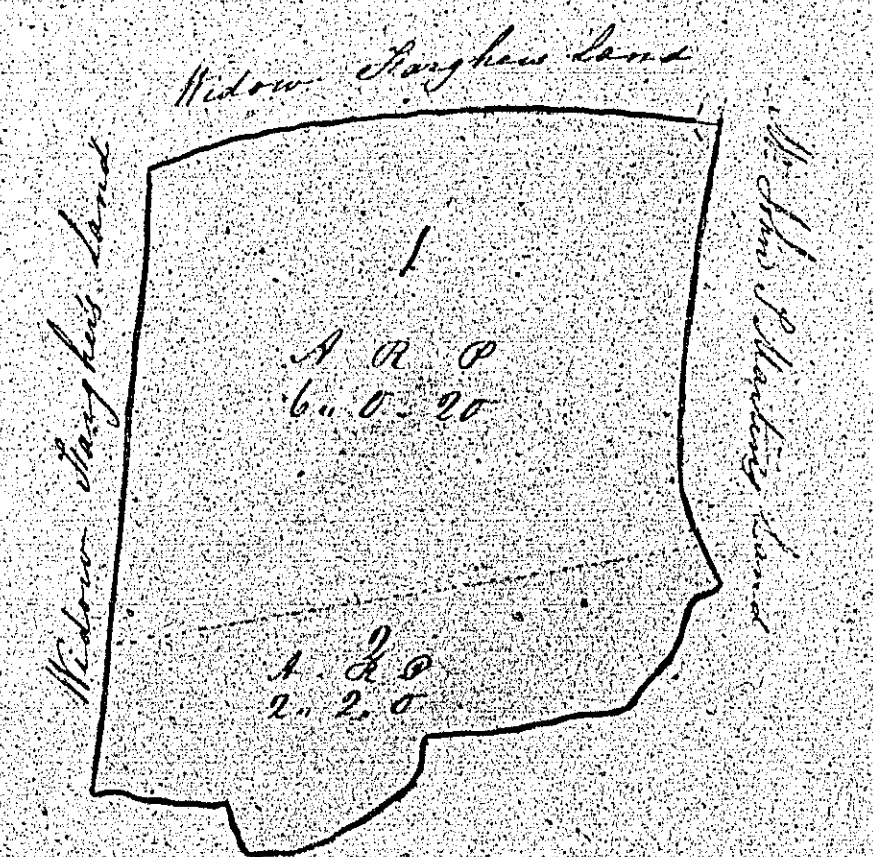 Widow Farghers Land
Widow Farghers Land
Mr John S Martins Land
1
A R P
6 " 0 - 20
2
A R P
2 " 2 , 0